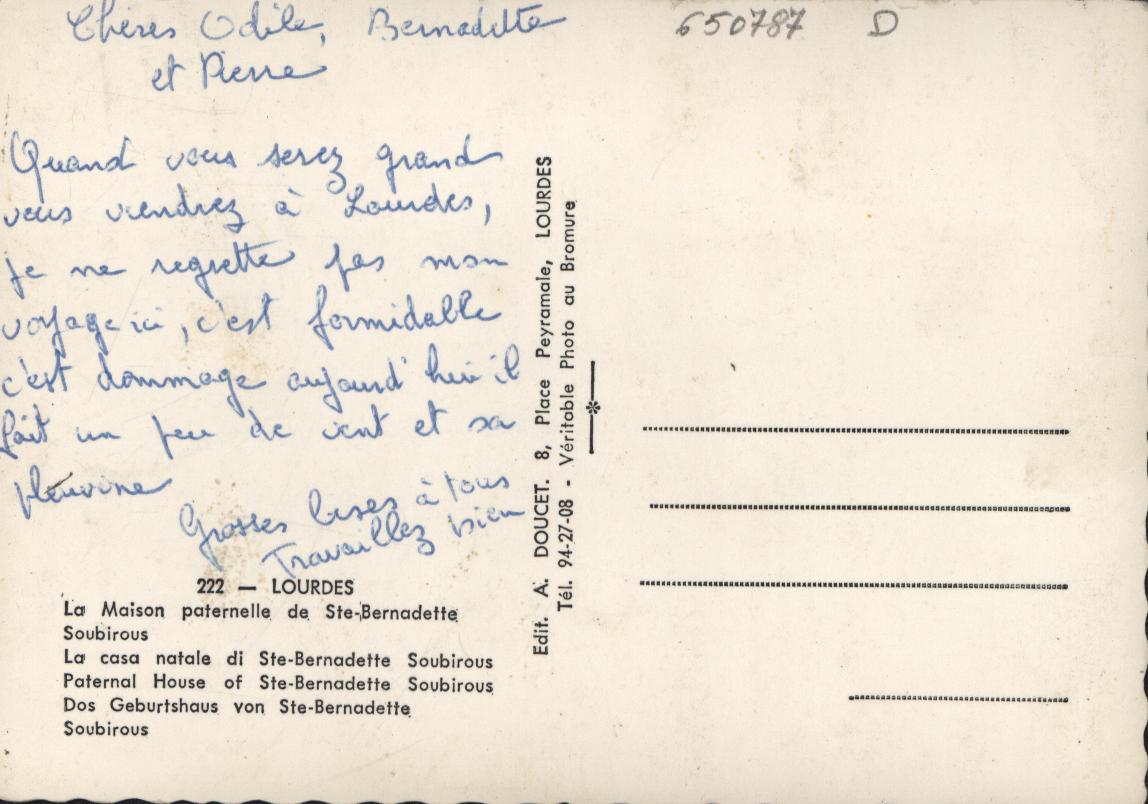 Chères Odile, Bernadette
et Pierre
Quand vous serez grand
vous viendrez à Lourdes,
je ne regrette pas mon
voyage ici, c'est formidable
c'est dommage aujourd'hui il
fait un peu de vent et sa
pleuvine
Grosses bises à tous
Travaillez bien
222 — LOURDES
La Maison paternelle de Ste-Bernadette
Soubirous
La casa natale di Ste-Bernadette Soubirous
Paternal House of Ste-Bernadette Soubirous
Dos Geburtshaus von Ste-Bernadette
Soubirous
Edit. A. DOUCET. 8, Place Peyramale, LOURDES
Tél. 94-27-08 - Véritable Photo au Bromure
650787 D